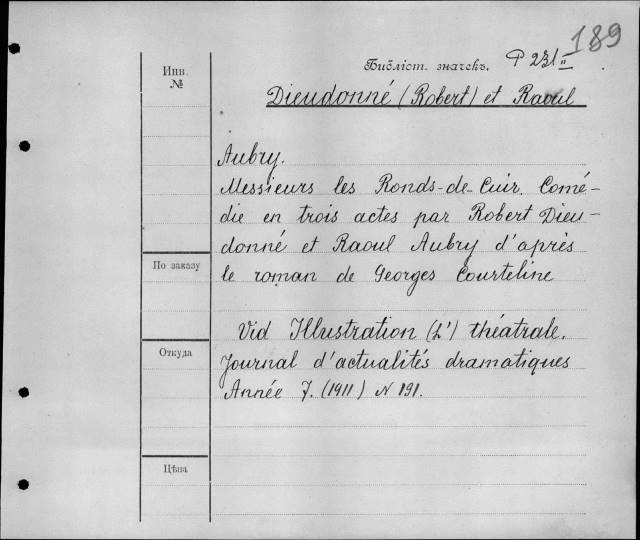 189
Библіот. значекъ. P 231 II
Инв. №
Dieudonné (Robert) et Raoul
Aubry.
Messieurs les Ronds-de-Cuir. Comé-
die en trois actes par Robert Dieu-
donné et Raoul Aubry d'après
le roman de Georges Courteline
По заказу
Vid Illustration (L') théatrale.
Откуда
Journal d'actualités dramatiques
Année 7. (1911) N 191.
Цѣна